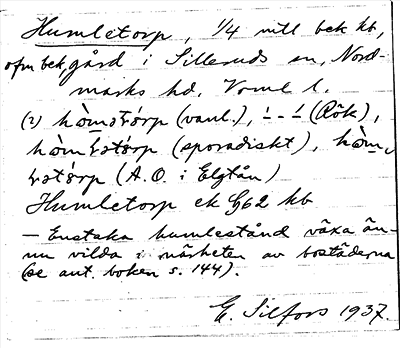 Humletorp, 1/4 mtl bek kb,
ofm bek, gård i Silleruds sn, Nord-
marks hd. Vrml l.
(2) hòmstórp (vanl.), (Rök),
(sporadiskt), hòm-
(A.O. i Elgtån)
Humletorp ek G62 kb
– Enstaka humlestånd växa än-
nu vilda i närheten av bostäderna
(se ant. boken s. 144).
E. Silfors 1937.